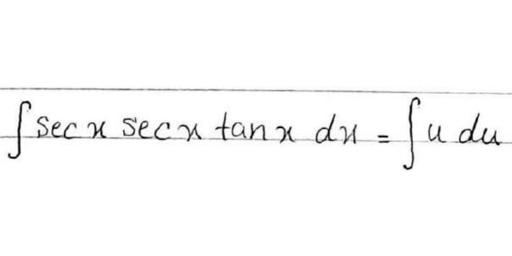 ∫ sec x sec x tan x dx = ∫ u du